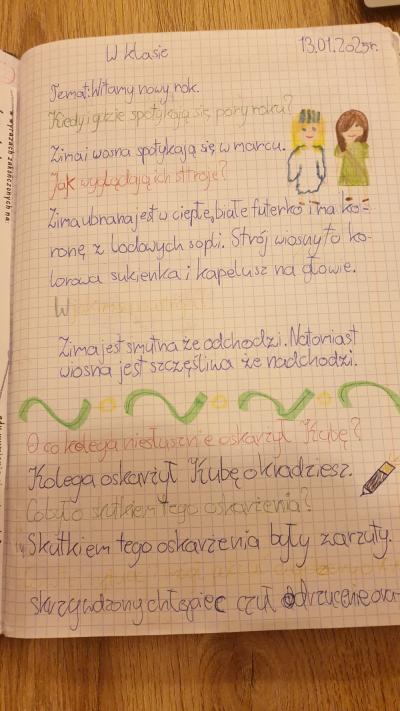 W klasie 13.01.2025r.
Temat: Witamy nowy rok.
Kiedy i gdzie spotykają się pory roku?
Zima i wiosna spotykają się w marcu.
Jak wyglądają ich stroje?
Zima ubrana jest w ciepłe, białe futerko i ma ko-
ronę z lodowych sopli. Strój wiosny to ko-
lorowa sukienka i kapelusz na głowie.
W
Zima jest smutna że odchodzi. Natomiast
wiosna jest szczęśliwa że nadchodzi.
O co kolega niesłusznie oskarżył Kubę?
Kolega oskarżył Kubę o kradzież.
Co było skutkiem tego oskarżenia?
Skutkiem tego oskarżenia były zarzuty.
skrzywdzony chłopiec czuł odrzucenie